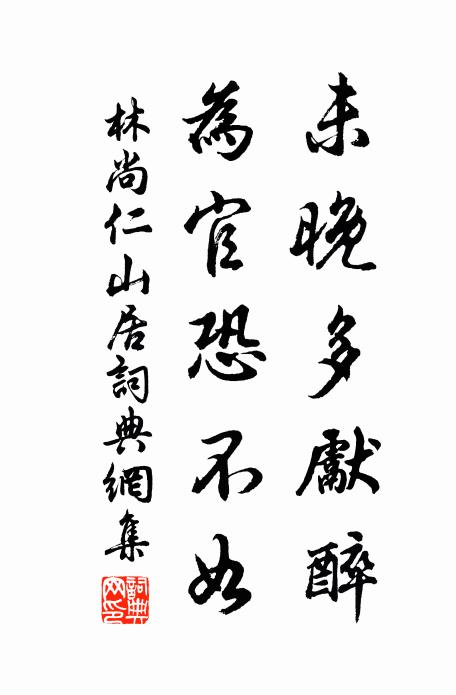 未晚多獻醉
為官恐不如
林尚仁山居詞典網集
詞典网印